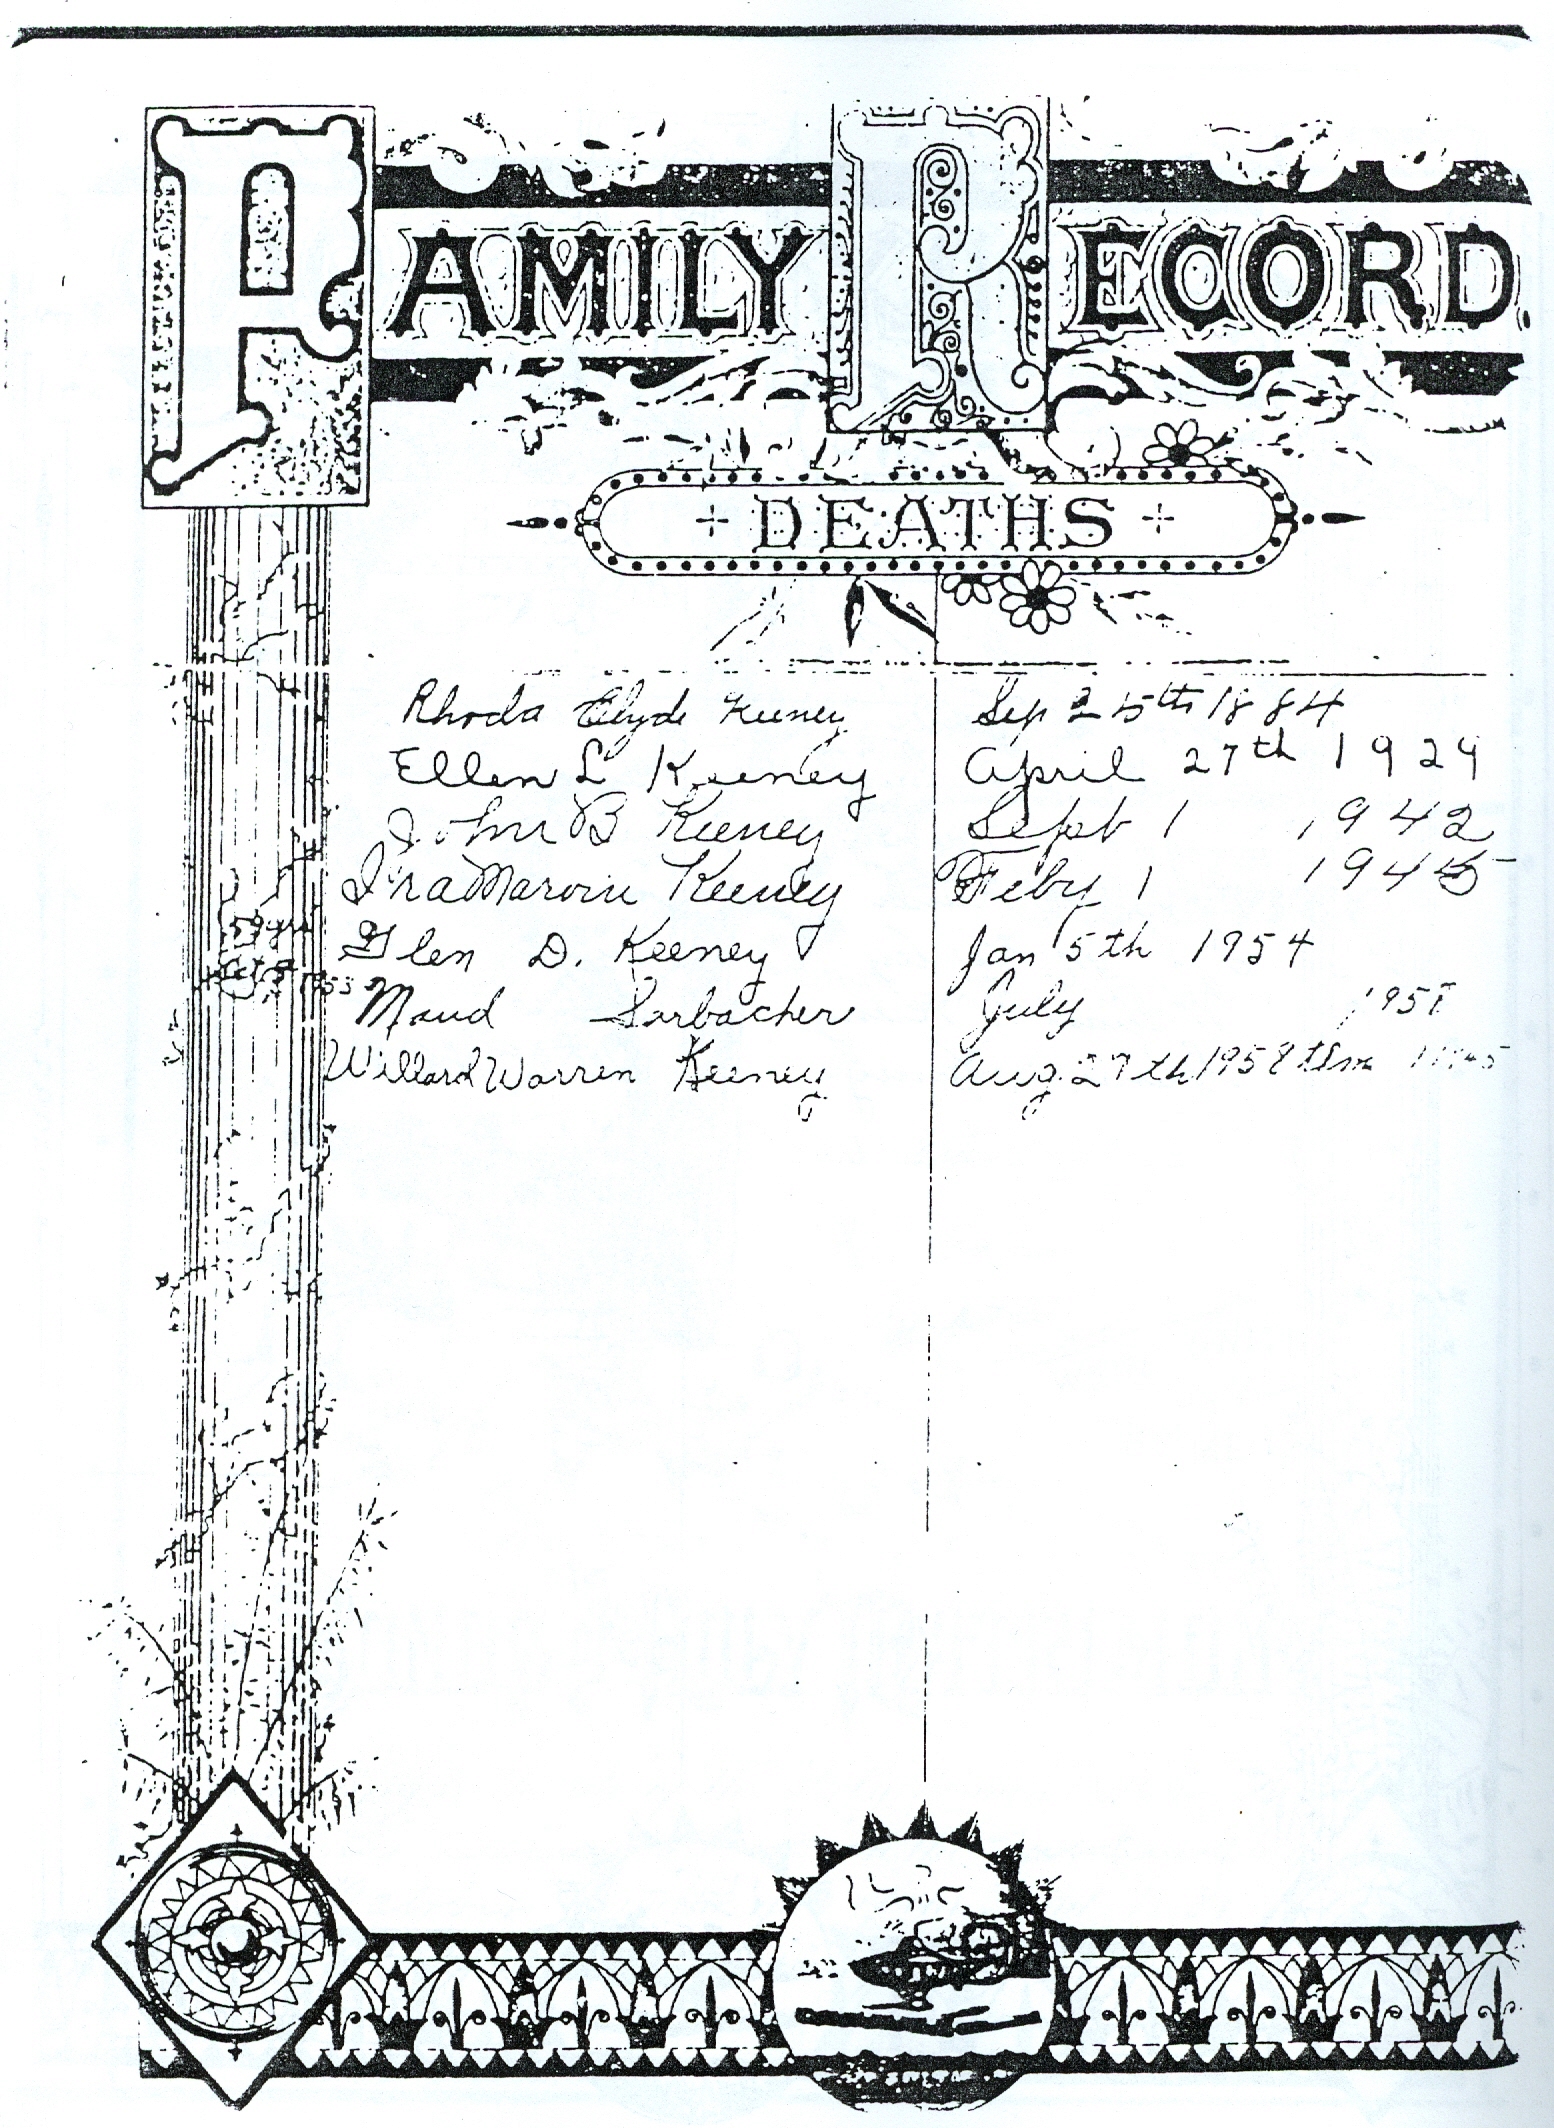 FAMILY RECORD.
DEATHS
Rhoda Clyde Keeney Sep 25th 1884
Ellen L Keeney April 27th 1929
John B Keeney Sept 1 1942
Ira Marvin Keeney Feby 1 1945
59 yrs Glen D. Keeney Jan 5th 1954
1953 Maud Sorbacher July 1951
Willard Warren Keeney Aug 27th 1958